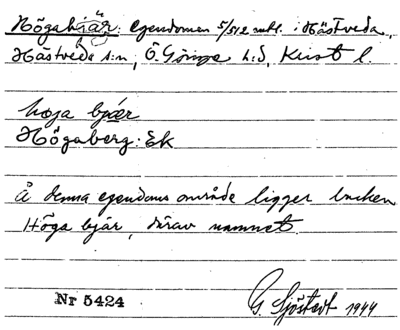 Högabjär: egendomen 5/512 mtl. i Hästveda,
Hästveda s:n, Ö. Göinge h:d, Krist l.
höga bjær
Högaberg: Ek
Å denna egendoms område ligger backen
Höga bjär, därav namnet.
Nr 5424
G. Sjöstedt 1944